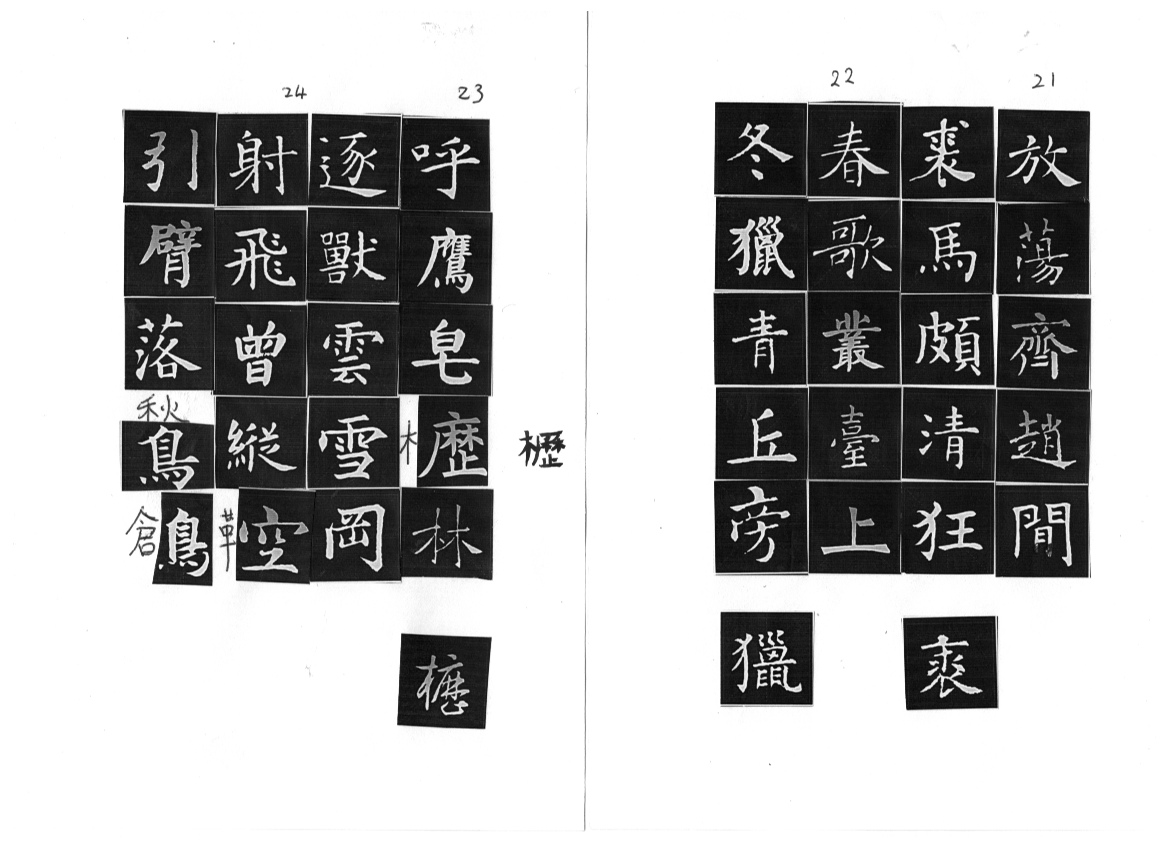 21
放蕩齊趙間
裘馬頗清狂
裘
22
春歌叢臺上
冬獵青丘旁
獵
櫪
23
呼鷹皂櫪林
櫪
逐獸雲雪岡
24
射飛曾縱鞚
引臂落鶖鶬